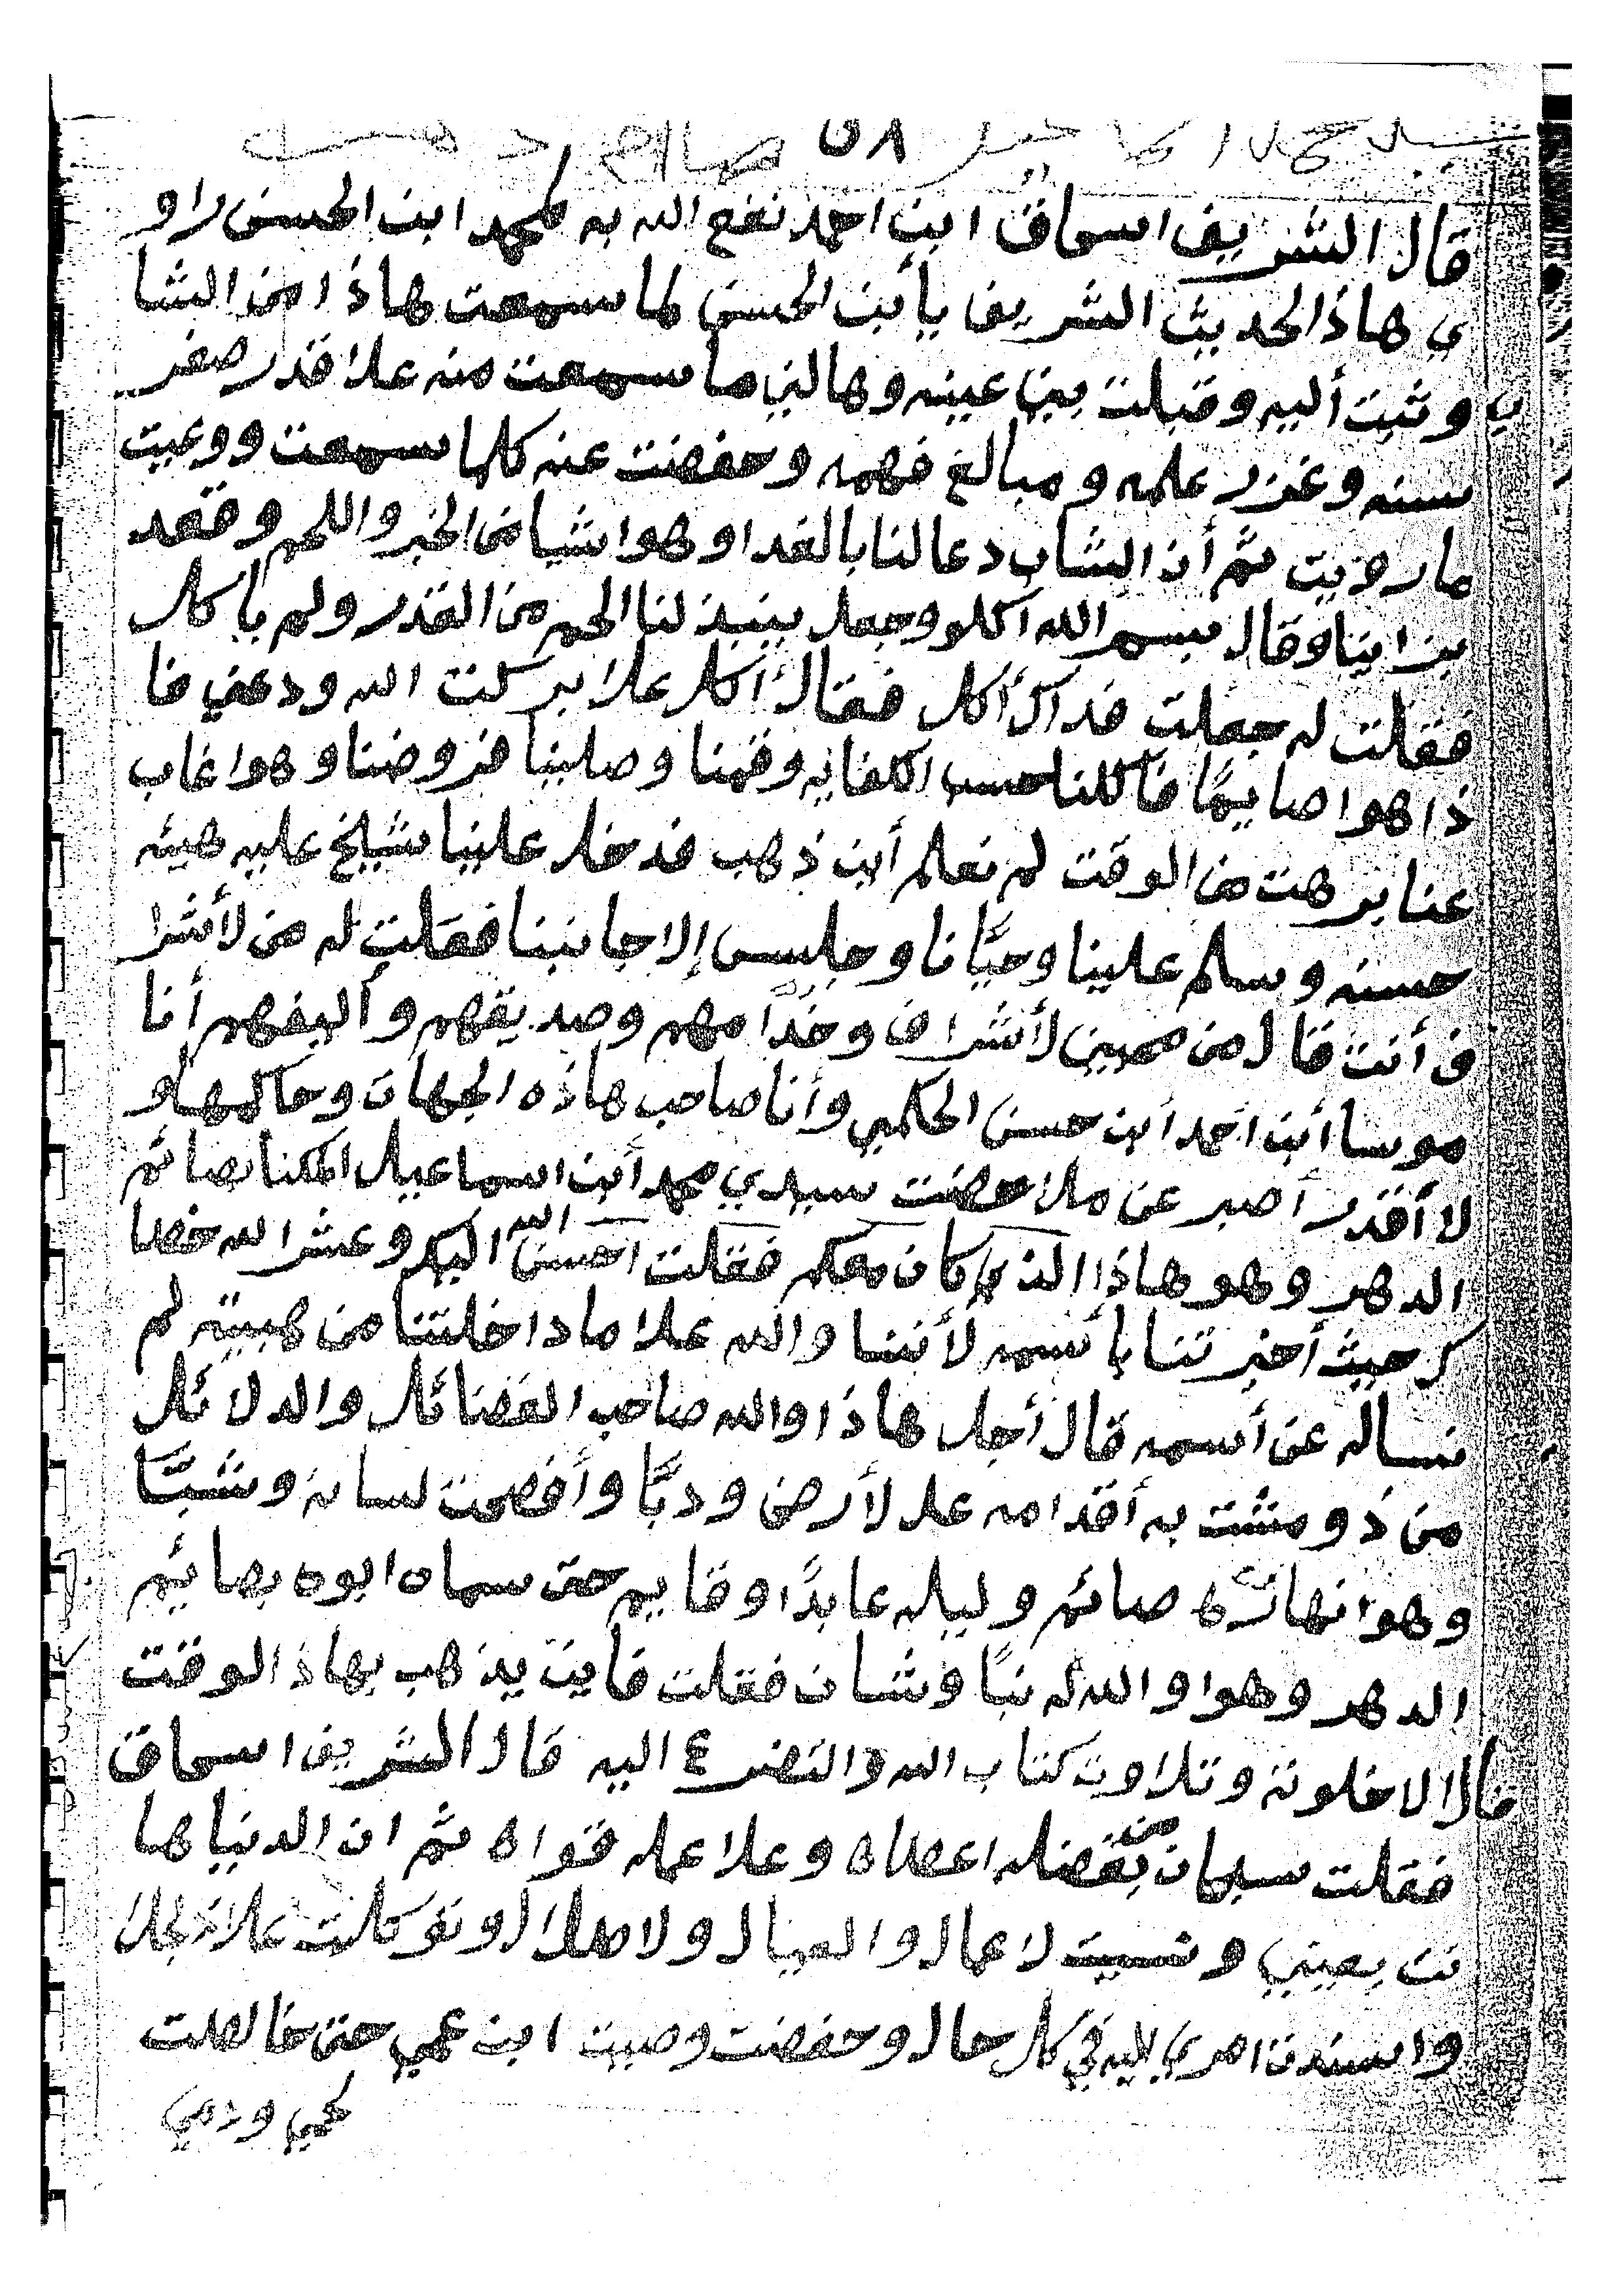 ٥٨
قال الشريف اسحاق ابن احمد نفع الله به محمد ابن الحسن راو
ي هاذا الحديث الشريف يأبن الحسن لما سمعت هاذا من الشا
ب وثبت أليه وقبلت بين عينه وهالني ما سمعت منه علا قدر صغر
سنه وغزر علمه ومبالغ فهمه وحفضت عنه كلما سمعت ووعيت
ما رويت ثم أن الشاب دعا لنا بالغدا وهوا شيا من الخبر واللحم وقعد
بزاينا وقال بسم الله اكلو وجعل ينبذ لنا الحم من القدر ولم يأكل
فقلت له جعلت فداك أكل فقال أكل علا بركت الله ودعني فا
ذا هوا صايمًا فأكلنا حسب الكفايه وقمنا وصلينا فروضنا وهوا غاب
عنا برهت من الوقت لم نعلم أين ذهب فدخل علينا شيخ عليه هيئه
حسنه وسلم علينا وحيَّانا وجلس إلا جانبنا فقلت له من لأشرا
ف أنت قال من محبين لأشراف وخدَّامهم وصديقهم وأليفهم أنا
موسا أبن احمد أبن حسن الحكمي وأنا صاحب هاذه الجهات وحاكمها و
لا أقدر أصبر عن ملاحضت سيدي محمد أبن اسماعيل المكنا بصائم
الدهر وهو هاذا الذي كان معكم فقلت احسن الله اليك وعشر الله خطا
ك حيث أخبرتنا بأسمه لأننا والله علا ما داخلتنا من هيبته لم
نساله عن أسمه قال أجل هاذا والله صاحب الفضائل والدلائل
من ذو مشت به أقدامه علا لأرض ودبَّا وأفصحت لسانه وشبَّا
وهوا نهاره صائم وليله عابدًا وقايم حتى سماه ابوه بصائيم
الدهر وهوا والله له نبًا وشان فقلت فاين يذهب بهاذ الوقت
قال الا خلوته وتلاوت كتاب الله والتضرع اليه قال الشريف اسحاق
فقلت سبحان من بفضله اعطاه وعلا عمله قواه ثم ان الدنيا ها
نت بعيني ونسيت لاعمال والعيال ولاطلال وتوكلت علا
واسندت امري اليه في كل حال وحفضت وصيت ابن عمي حتى خالطت
لحمي ودمي